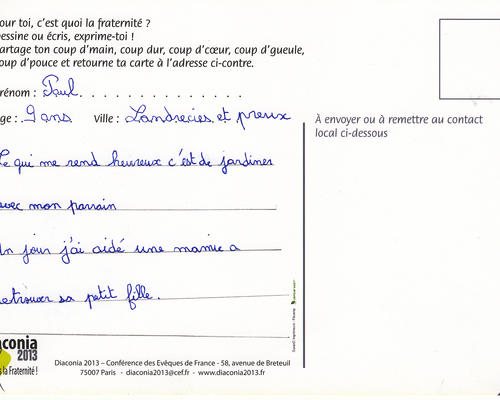 our toi, c'est quoi la fraternité ?
essine ou écris, exprime-toi !
artage ton coup d'main, coup dur, coup d'cœur, coup d'gueule,
oup d'pouce et retourne ta carte à l'adresse ci-contre.
rénom : Paul. . . . . . . . . . . . . .
ge : 9 ans Ville : Landrecies et preux
À envoyer ou à remettre au contact
local ci-dessous
Ce qui me rend heureux c'est de jardiner
avec mon parrain
Un jour j'ai aidé une mamie a
retrouver sa petit fille.
aconia
2013
la Fraternité !
Diaconia 2013 – Conférence des Evêques de France - 58, avenue de Breteuil
75007 Paris - diaconia2013@cef.fr - www.diaconia2013.fr